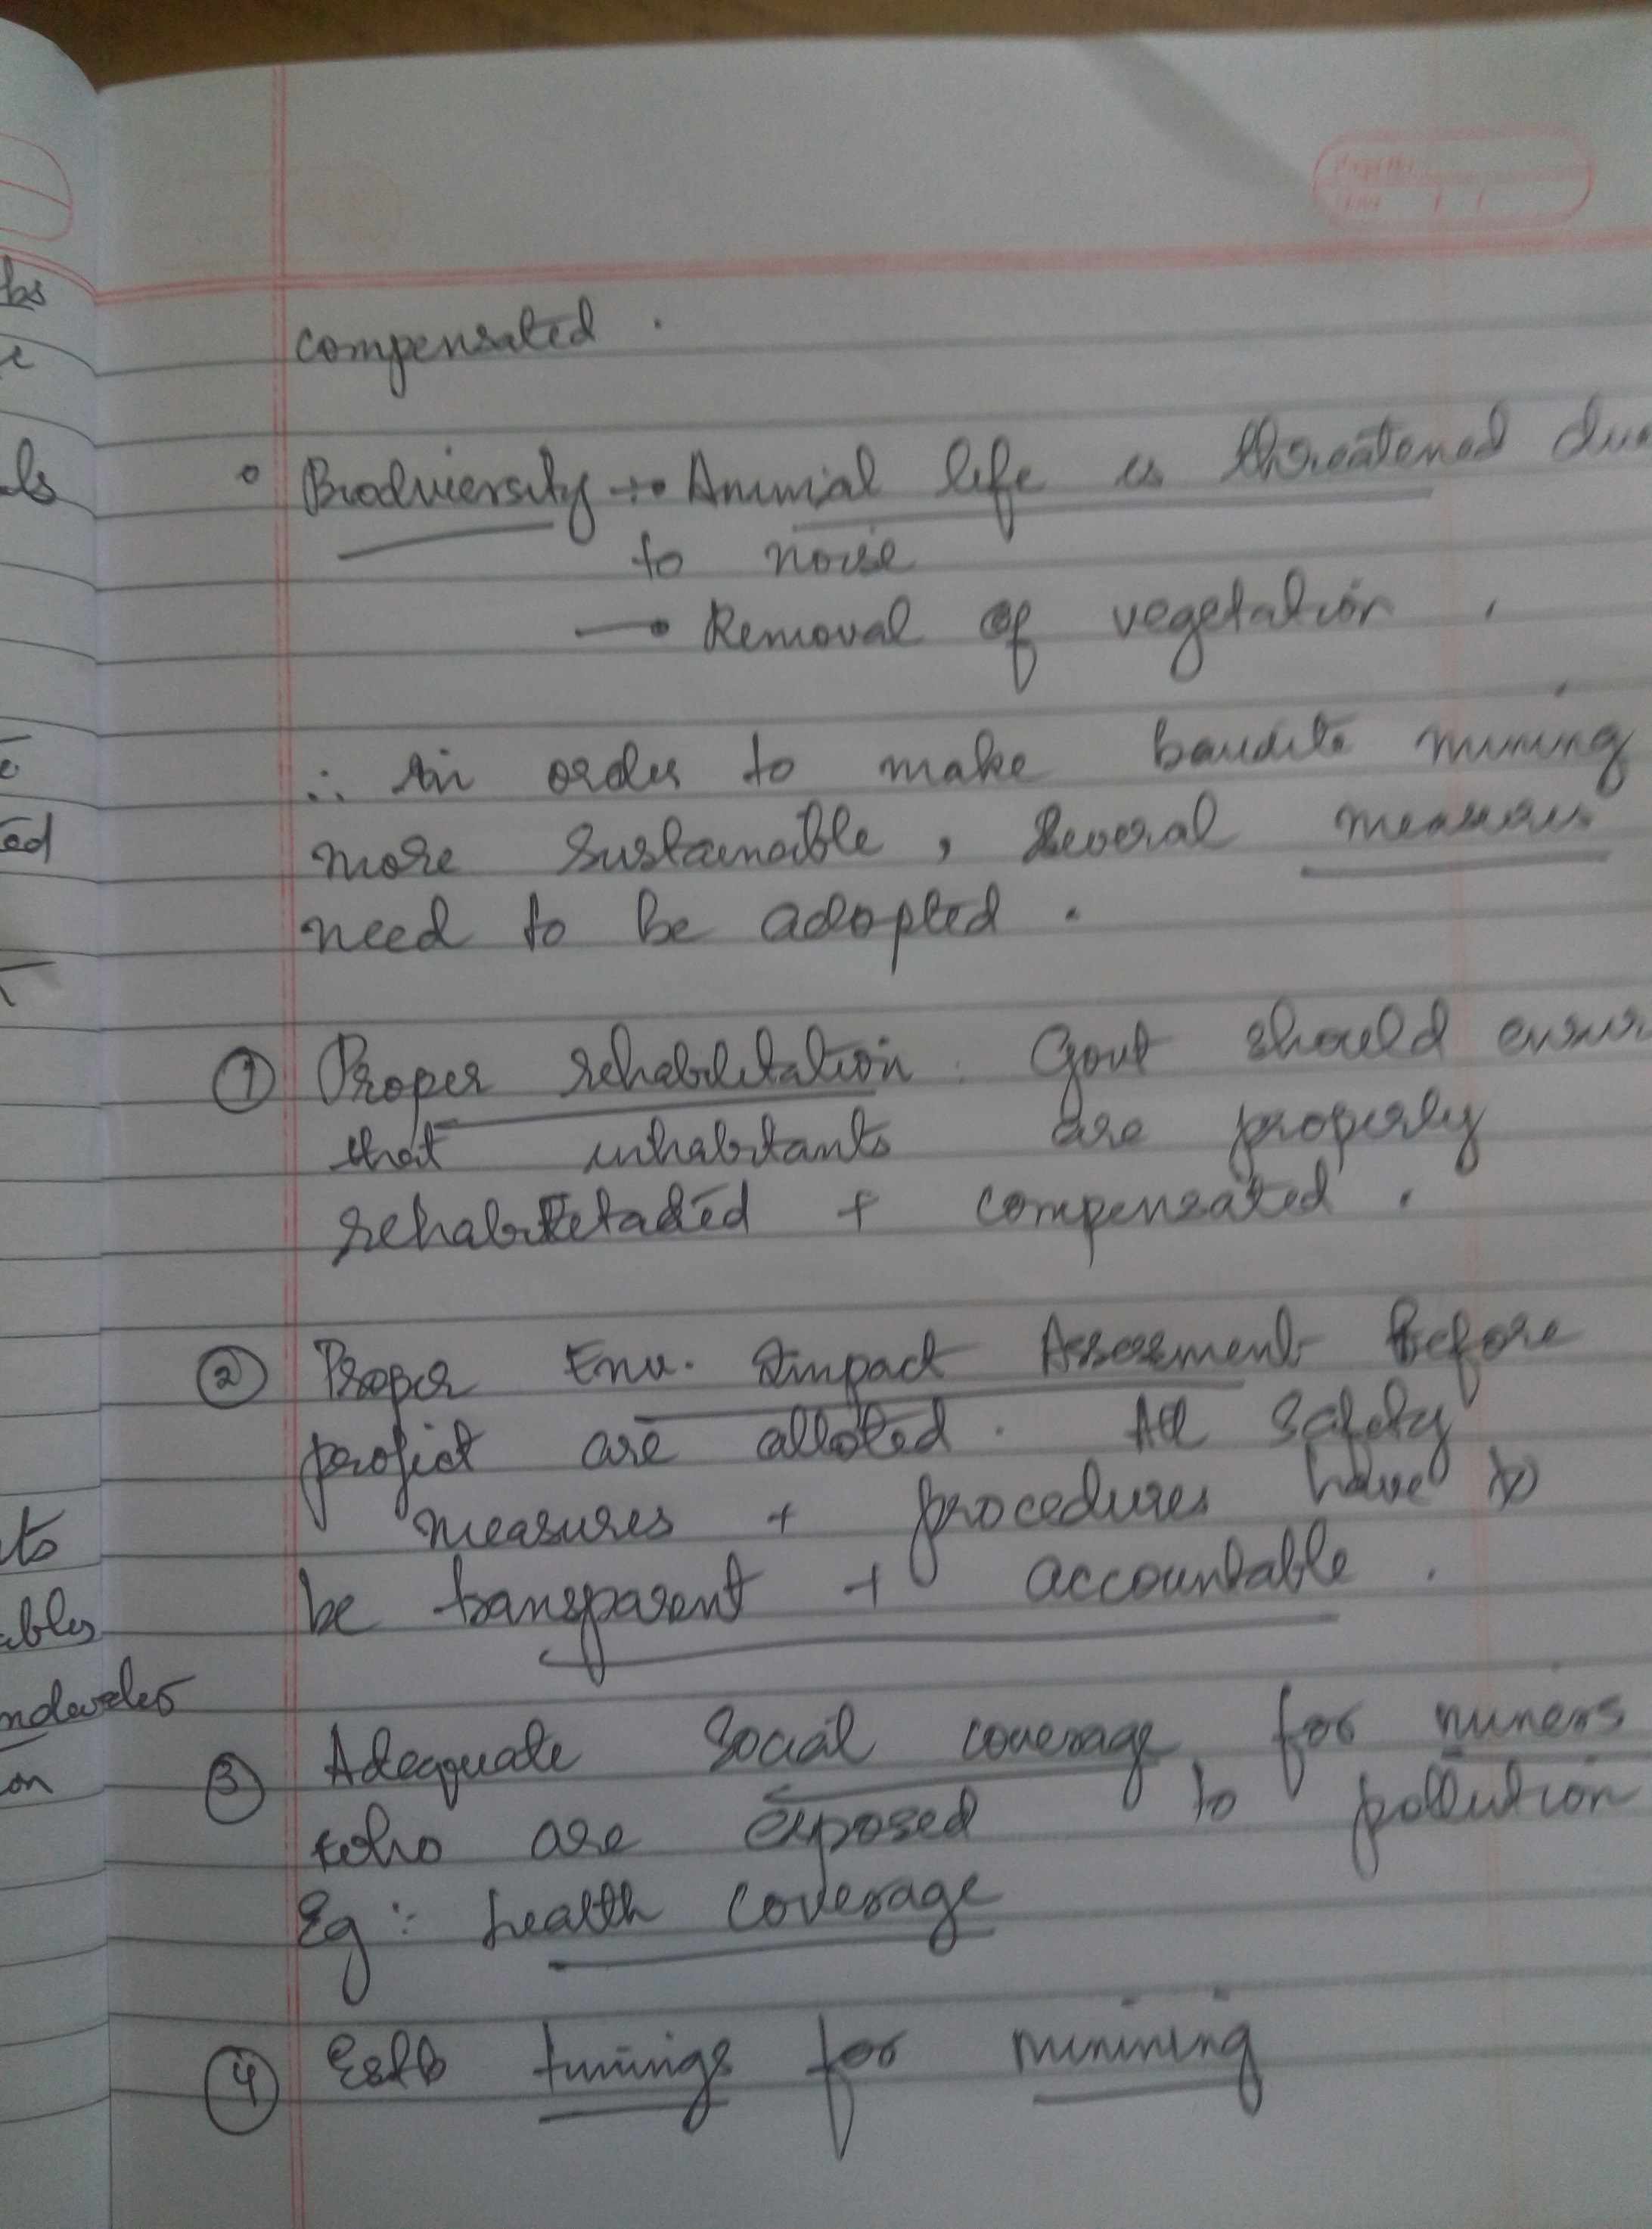 compensated.
Biodiversity → Animal life is threatened due
to noise
→ Removal of vegetation.
∴ In order to make bauxite mining
more sustainable, several measures
need to be adopted.
① Proper rehabilitation. Govt should
that inhabitants are properly
compensated.
② Proper Env. Impact Assessment before
project are alloted. All safety
measures + procedures have to
be transparent + accountable.
③ Adequate social coverage for miners
who are exposed to pollution
Eg: health coverage
④ Estb timings for minining